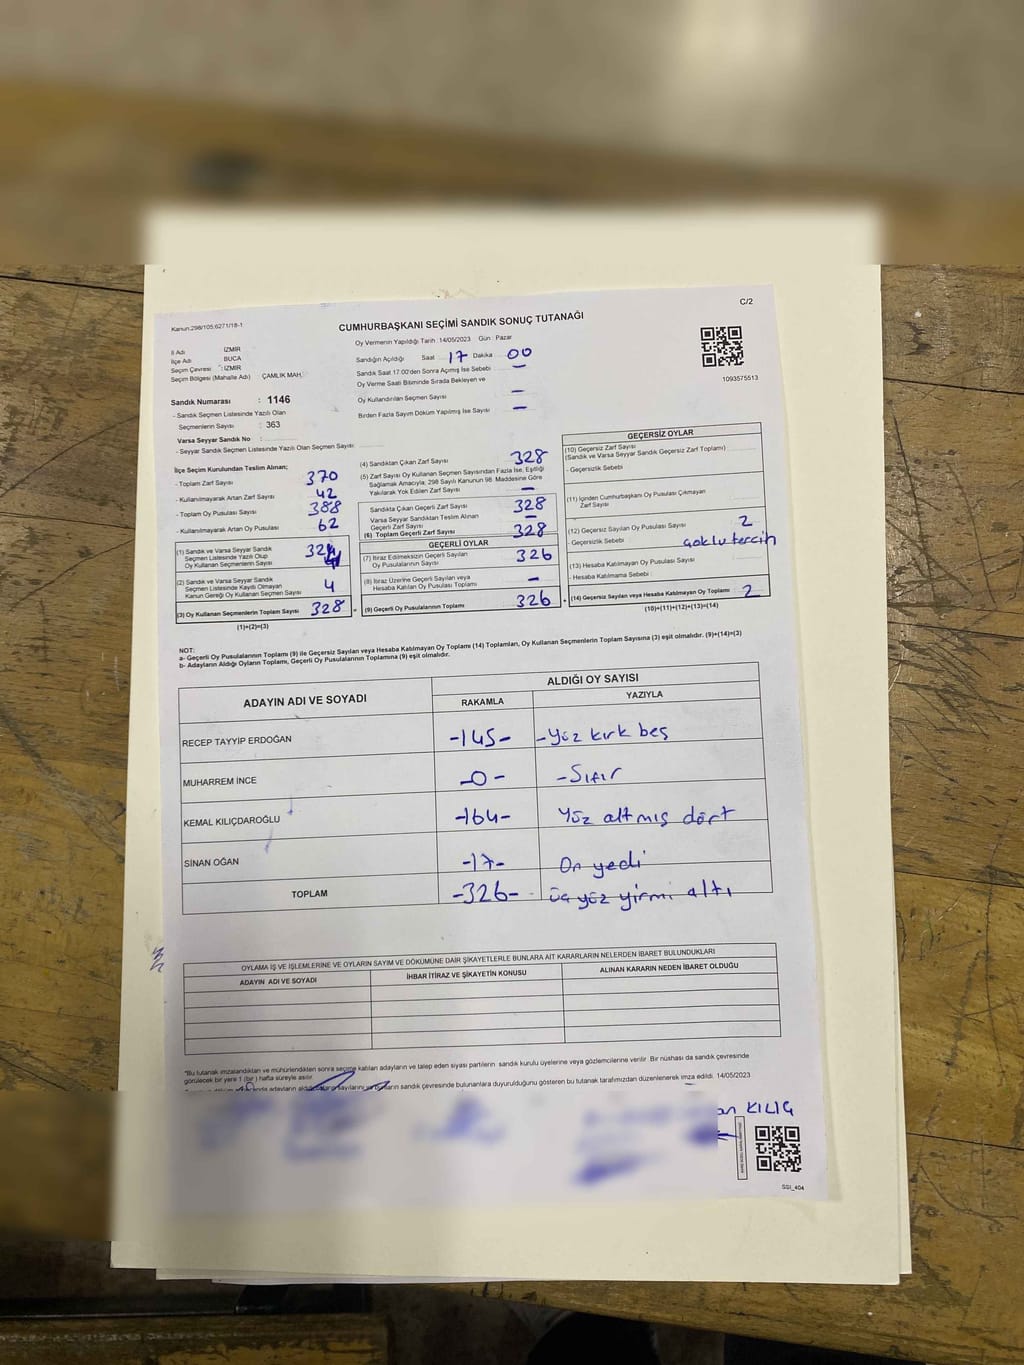 C/2
Kanun:298/105:6271/18-1
CUMHURBAŞKANI SEÇİMİ SANDIK SONUÇ TUTANAĞI
Oy Vermenin Yapıldığı Tarih :14/05/2023 Gün : Pazar
İl Adı : İZMİR
İlçe Adı : BUCA
Seçim Çevresi : İZMİR
Seçim Bölgesi (Mahalle Adı) ÇAMLIK MAH.
Sandık Numarası : 1146
- Sandık Seçmen Listesinde Yazılı Olan
Seçmenlerin Sayısı : 363
Varsa Seyyar Sandık No :
- Seyyar Sandık Seçmen Listesinde Yazılı Olan Seçmen Sayısı:
Sandığın Açıldığı Saat 17 Dakika 00
Sandık Saat 17.00'den Sonra Açılmış İse Sebebi –
Oy Verme Saati Bitiminde Sırada Bekleyen ve
Oy Kullandırılan Seçmen Sayısı –
Birden Fazla Sayım Döküm Yapılmış İse Sayısı –
1093575513
İlçe Seçim Kurulundan Teslim Alınan;
- Toplam Zarf Sayısı 370
- Kullanılmayarak Artan Zarf Sayısı 42
- Toplam Oy Pusulası Sayısı 388
- Kullanılmayarak Artan Oy Pusulası 62
(1) Sandık ve Varsa Seyyar Sandık
Seçmen Listesinde Yazılı Olup
Oy Kullanan Seçmenlerin Sayısı 324
(2) Sandık ve Varsa Seyyar Sandık
Seçmen Listesinde Kayıtlı Olmayan
Kanun Gereği Oy Kullanan Seçmen Sayısı 4
(3) Oy Kullanan Seçmenlerin Toplam Sayısı 328
(1)+(2)=(3)
(4) Sandıktan Çıkan Zarf Sayısı 328
(5) Zarf Sayısı Oy Kullanan Seçmen Sayısından Fazla İse, Eşitliği
Sağlamak Amacıyla, 298 Sayılı Kanunun 98. Maddesine Göre
Yakılarak Yok Edilen Zarf Sayısı –
Sandıkta Çıkan Geçerli Zarf Sayısı 328
Varsa Seyyar Sandıktan Teslim Alınan
Geçerli Zarf Sayısı –
(6) Toplam Geçerli Zarf Sayısı 328
GEÇERLİ OYLAR
(7) İtiraz Edilmeksizin Geçerli Sayılan
Oy Pusulasının Sayısı 326
(8) İtiraz Üzerine Geçerli Sayılan veya
Hesaba Katılan Oy Pusulası Toplamı –
(9) Geçerli Oy Pusulalarının Toplamı 326
GEÇERSİZ OYLAR
(10) Geçersiz Zarf Sayısı
(Sandık ve Varsa Seyyar Sandık Geçersiz Zarf Toplamı)
- Geçersizlik Sebebi
(11) İçinden Cumhurbaşkanı Oy Pusulası Çıkmayan
Zarf Sayısı
(12) Geçersiz Sayılan Oy Pusulası Sayısı 2
- Geçersizlik Sebebi çoklu tercih
(13) Hesaba Katılmayan Oy Pusulası Sayısı
- Hesaba Katılmama Sebebi :
(14) Geçersiz Sayılan veya Hesaba Katılmayan Oy Toplamı 2
(10)+(11)+(12)+(13)=(14)
NOT:
a- Geçerli Oy Pusulalarının Toplamı (9) ile Geçersiz Sayılan veya Hesaba Katılmayan Oy Toplamı (14) Toplamları, Oy Kullanan Seçmenlerin Toplam Sayısına (3) eşit olmalıdır. (9)+(14)=(3)
b- Adayların Aldığı Oyların Toplamı, Geçerli Oy Pusulalarının Toplamına (9) eşit olmalıdır.
ADAYIN ADI VE SOYADI ALDIĞI OY SAYISI
RAKAMLA YAZIYLA
RECEP TAYYİP ERDOĞAN -145- -Yüz kırk beş
MUHARREM İNCE -0- -Sıfır
KEMAL KILIÇDAROĞLU -164- Yüz altmış dört
SİNAN OĞAN -17- On yedi
TOPLAM -326- üç yüz yirmi altı
OYLAMA İŞ VE İŞLEMLERİNE VE OYLARIN SAYIM VE DÖKÜMÜNE DAİR ŞİKAYETLERLE BUNLARA AİT KARARLARIN NELERDEN İBARET BULUNDUKLARI
ADAYIN ADI VE SOYADI İHBAR İTİRAZ VE ŞİKAYETİN KONUSU ALINAN KARARIN NEDEN İBARET OLDUĞU
"Bu tutanak imzalandıktan ve mühürlendikten sonra seçime katılan adayların ve talep eden siyasi partilerin sandık kurulu üyelerine veya gözlemcilerine verilir. Bir nüshası da sandık çevresinde
görülecek bir yere 1 (bir) hafta süreyle asılır.
sandık çevresinde bulunanlara duyurulduğunu gösteren bu tutanak tarafımızdan düzenlenerek imza edildi. 14/05/2023
KILIÇ
SSI_404